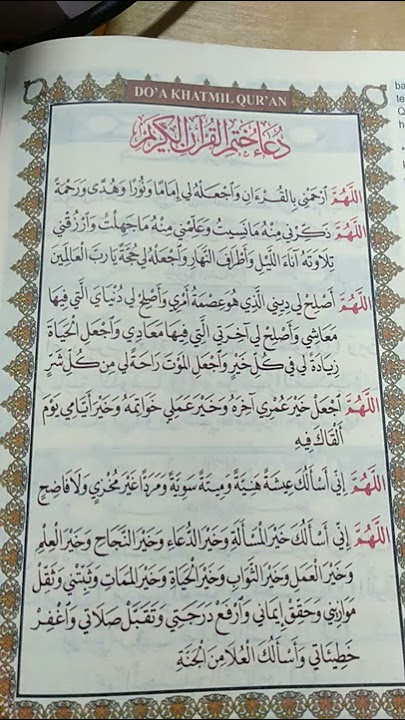 DO'A KHATMIL QUR'AN
دُعَاءُ خَتْمِ الْقُرْآنِ الْكَرِيْمِ
اَللّٰهُمَّ ارْحَمْنِي بِالْقُرْءَانِ وَاجْعَلْهُ لِي إِمَامًا وَنُورًا وَهُدًى وَرَحْمَةً
اَللّٰهُمَّ ذَكِّرْنِي مِنْهُ مَا نَسِيتُ وَعَلِّمْنِي مِنْهُ مَا جَهِلْتُ وَارْزُقْنِي
تِلَاوَتَهُ آنَاءَ اللَّيْلِ وَأَطْرَافَ النَّهَارِ وَاجْعَلْهُ لِي حُجَّةً يَا رَبَّ الْعَالَمِينَ
اَللّٰهُمَّ أَصْلِحْ لِي دِينِي الَّذِي هُوَ عِصْمَةُ أَمْرِي وَأَصْلِحْ لِي دُنْيَايَ الَّتِي فِيهَا
مَعَاشِي وَأَصْلِحْ لِي آخِرَتِي الَّتِي فِيهَا مَعَادِي وَاجْعَلِ الْحَيَاةَ
زِيَادَةً لِي فِي كُلِّ خَيْرٍ وَاجْعَلِ الْمَوْتَ رَاحَةً لِي مِنْ كُلِّ شَرٍّ
اَللّٰهُمَّ اجْعَلْ خَيْرَ عُمْرِي آخِرَهُ وَخَيْرَ عَمَلِي خَوَاتِمَهُ وَخَيْرَ أَيَّامِي يَوْمَ
أَلْقَاكَ فِيهِ
اَللّٰهُمَّ إِنِّي أَسْأَلُكَ عِيشَةً هَنِيَّةً وَمِيتَةً سَوِيَّةً وَمَرَدًّا غَيْرَ مُخْزِي وَلَا فَاضِحٍ
اَللّٰهُمَّ إِنِّي أَسْأَلُكَ خَيْرَ الْمَسْأَلَةِ وَخَيْرَ الدُّعَاءِ وَخَيْرَ النَّجَاحِ وَخَيْرَ الْعِلْمِ
وَخَيْرَ الْعَمَلِ وَخَيْرَ الثَّوَابِ وَخَيْرَ الْحَيَاةِ وَخَيْرَ الْمَمَاتِ وَثَبِّتْنِي وَثَقِّلْ
مَوَازِينِي وَحَقِّقْ إِيمَانِي وَارْفَعْ دَرَجَتِي وَتَقَبَّلْ صَلَاتِي وَاغْفِرْ
خَطِيئَاتِي وَأَسْأَلُكَ الْعُلَا مِنَ الْجَنَّةِ